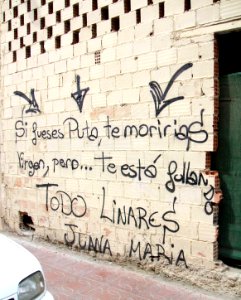 Si fueses Puta, te moririas
Virgen, pero... te está follando
TODO LINARES
JUANA MARIA